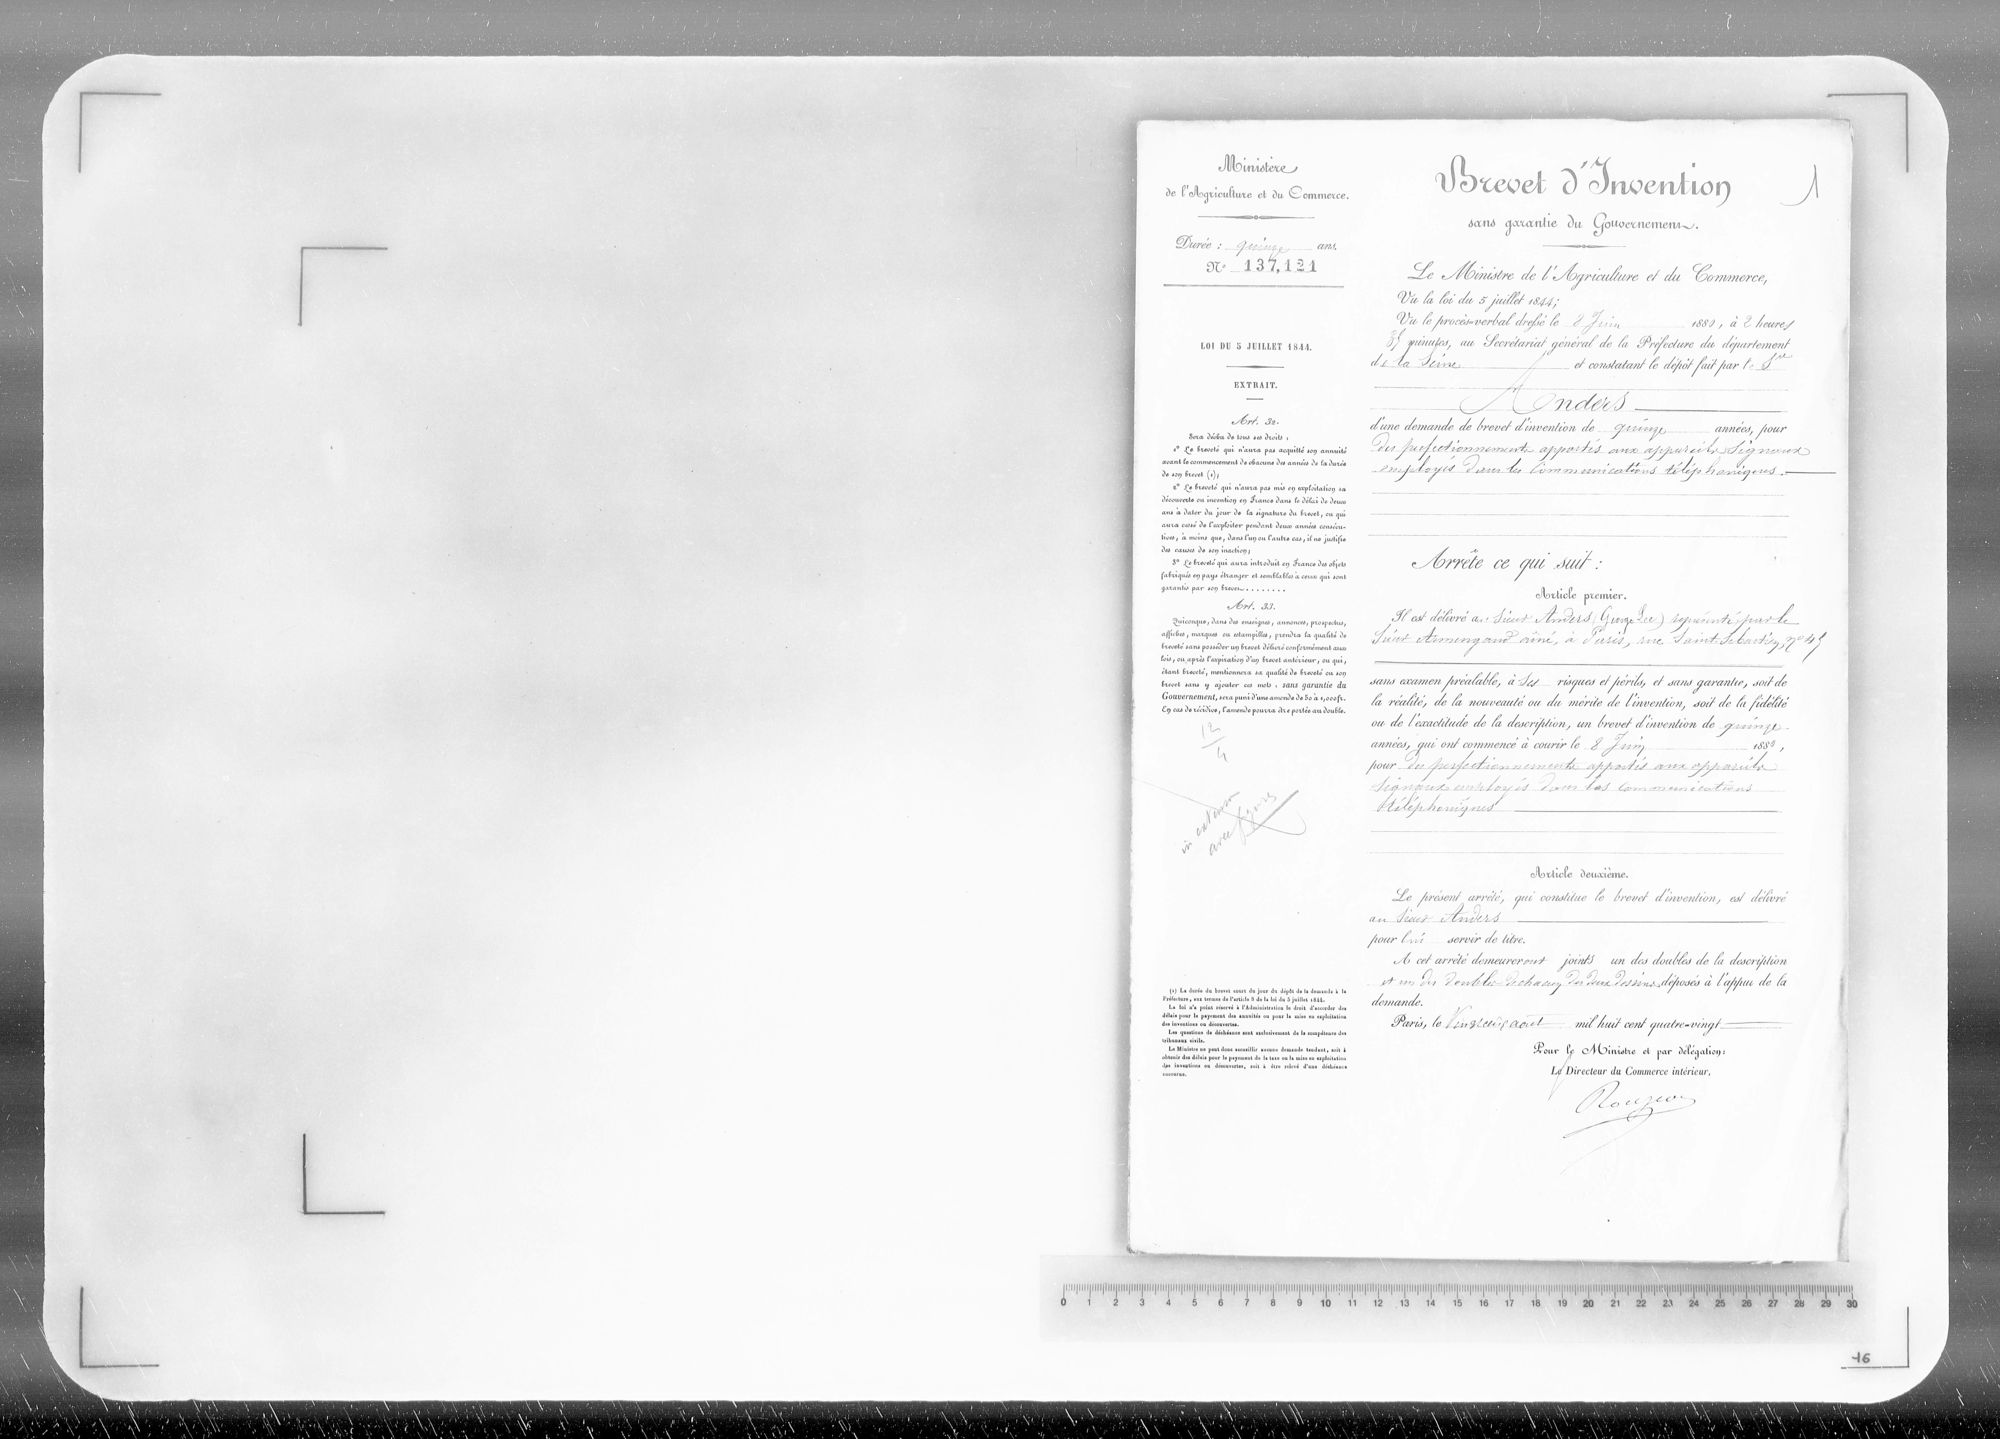 Ministère
de l'Agriculture et du Commerce.
Durée : quinze ans.
N° 137,121
LOI DU 5 JUILLET 1844.
EXTRAIT.
Art. 32.
Sera déchu de tous ses droits :
1° Le breveté qui n'aura pas acquitté son annuité
avant le commencement de chacune des années de la durée
de son brevet (1);
2° Le breveté qui n'aura pas mis en exploitation sa
découverte ou invention en France dans le délai de deux
ans à dater du jour de la signature du brevet, ou qui
aura cessé de l'exploiter pendant deux années consécu-
tives, à moins que, dans l'un ou l'autre cas, il ne justifie
des causes de son inaction;
3° Le breveté qui aura introduit en France des objets
fabriqués en pays étranger et semblables à ceux qui sont
garantis par son brevet........
Art. 33.
Quiconque, dans des enseignes, annonces, prospectus,
affiches, marques ou estampilles, prendra la qualité de
breveté sans posséder un brevet délivré conformément aux
lois, ou après l'expiration d'un brevet antérieur, ou qui,
étant breveté, mentionnera sa qualité de breveté ou son
brevet sans y ajouter ces mots : sans garantie du
Gouvernement, sera puni d'une amende de 50 à 1,000 fr.
En cas de récidive, l'amende pourra être portée au double.
12
4
in extenso
avec figures
(1) La durée du brevet court du jour du dépôt de la demande à la
Préfecture, aux termes de l'article 8 de la loi du 5 juillet 1844.
La loi n'a point réservé à l'Administration le droit d'accorder des
délais pour le payement des annuités ou pour la mise en exploitation
des inventions ou découvertes.
Les questions de déchéance sont exclusivement de la compétence des
tribunaux civils.
Le Ministre ne peut donc accueillir aucune demande tendant, soit à
obtenir des délais pour le payement de la taxe ou la mise en exploitation
des inventions ou découvertes, soit à être relevé d'une déchéance
encourue.
Brevet d'Invention
1
sans garantie du Gouvernement.
Le Ministre de l'Agriculture et du Commerce,
Vu la loi du 5 juillet 1844;
Vu le procès-verbal dressé le 8 Juin 1880, à 2 heures
35 minutes, au Secrétariat général de la Préfecture du département
de la Seine et constatant le dépôt fait par le Sr
Anders
d'une demande de brevet d'invention de quinze années, pour
des perfectionnements apportés aux appareils signaux
employés dans les communications téléphoniques.
Arrête ce qui suit :
Article premier.
Il est délivré au Sieur Anders (George Lee) représenté par le
Sieur Armengaud ainé, à Paris, rue Saint Sébastien, n° 45
sans examen préalable, à ses risques et périls, et sans garantie, soit de
la réalité, de la nouveauté ou du mérite de l'invention, soit de la fidélité
ou de l'exactitude de la description, un brevet d'invention de quinze
années, qui ont commencé à courir le 8 Juin 1880,
pour des perfectionnements apportés aux appareils
signaux employés dans les communications
téléphoniques
Article deuxième.
Le présent arrêté, qui constitue le brevet d'invention, est délivré
au Sieur Anders
pour lui servir de titre.
A cet arrêté demeureront joints un des doubles de la description
et un des doubles de chacun des deux dessins déposés à l'appui de la
demande.
Paris, le août mil huit cent quatre-vingt
Pour le Ministre et par délégation:
Le Directeur du Commerce intérieur.
0 1 2 3 4 5 6 7 8 9 10 11 12 13 14 15 16 17 18 19 20 21 22 23 24 25 26 27 28 29 30
16